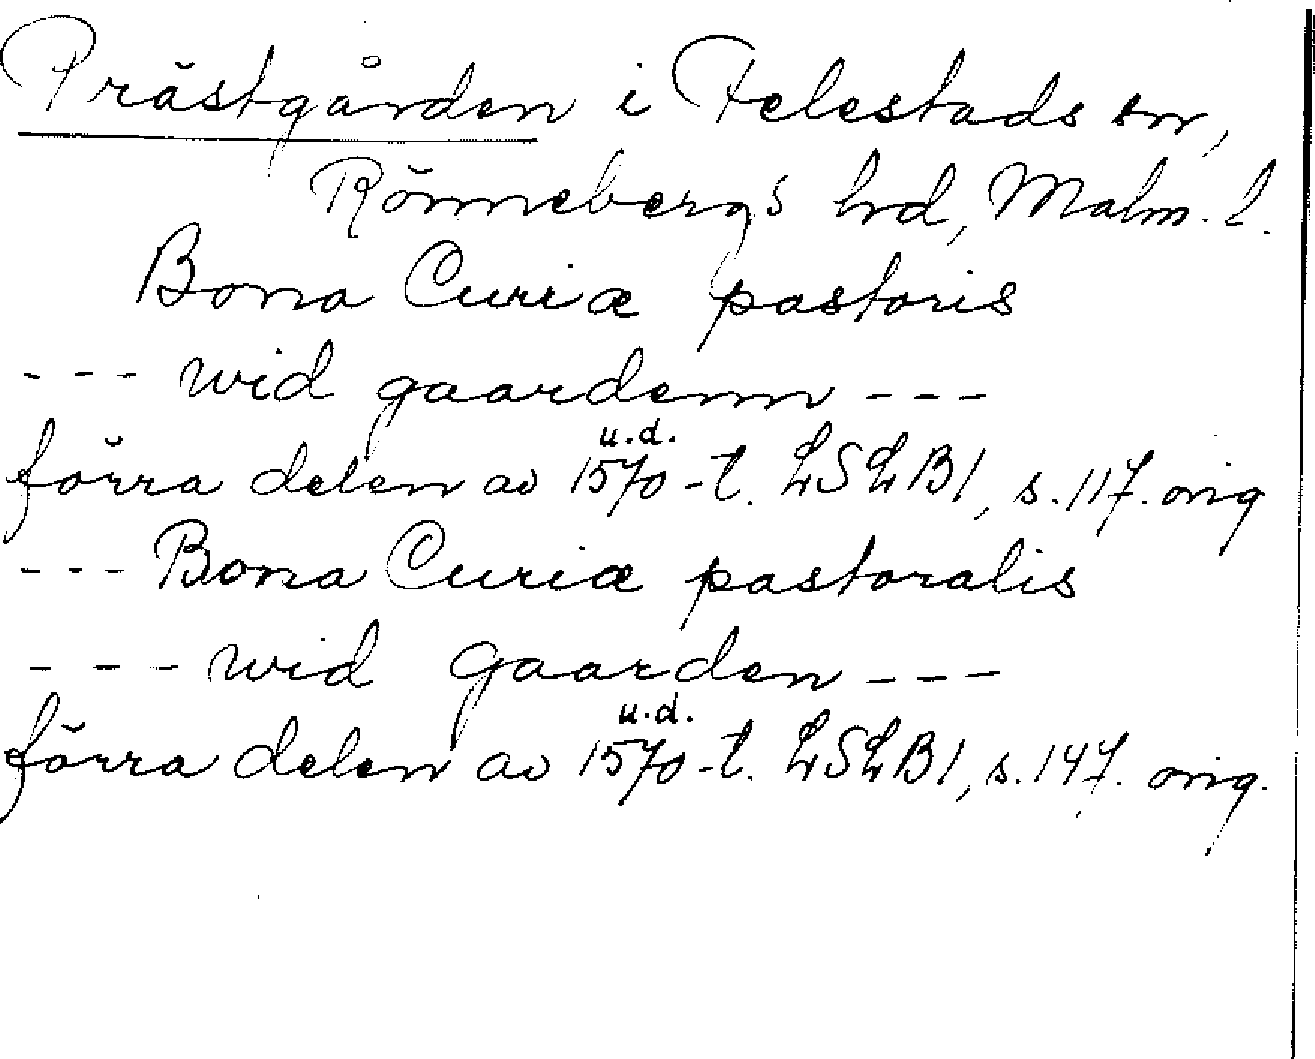 Prästgården i Felestads sn,
Rönnebergs hrd, Malm. l.
Bona Curiæ pastoris
--- wid gaardenn ---
u.d.
förra delen av 1570-t. LSLB1, s. 117. orig
--- Bona Curiæ pastoralis
--- wid gaarden ---
u.d.
förra delen av 1570-t. LSLB1, s. 147. orig.